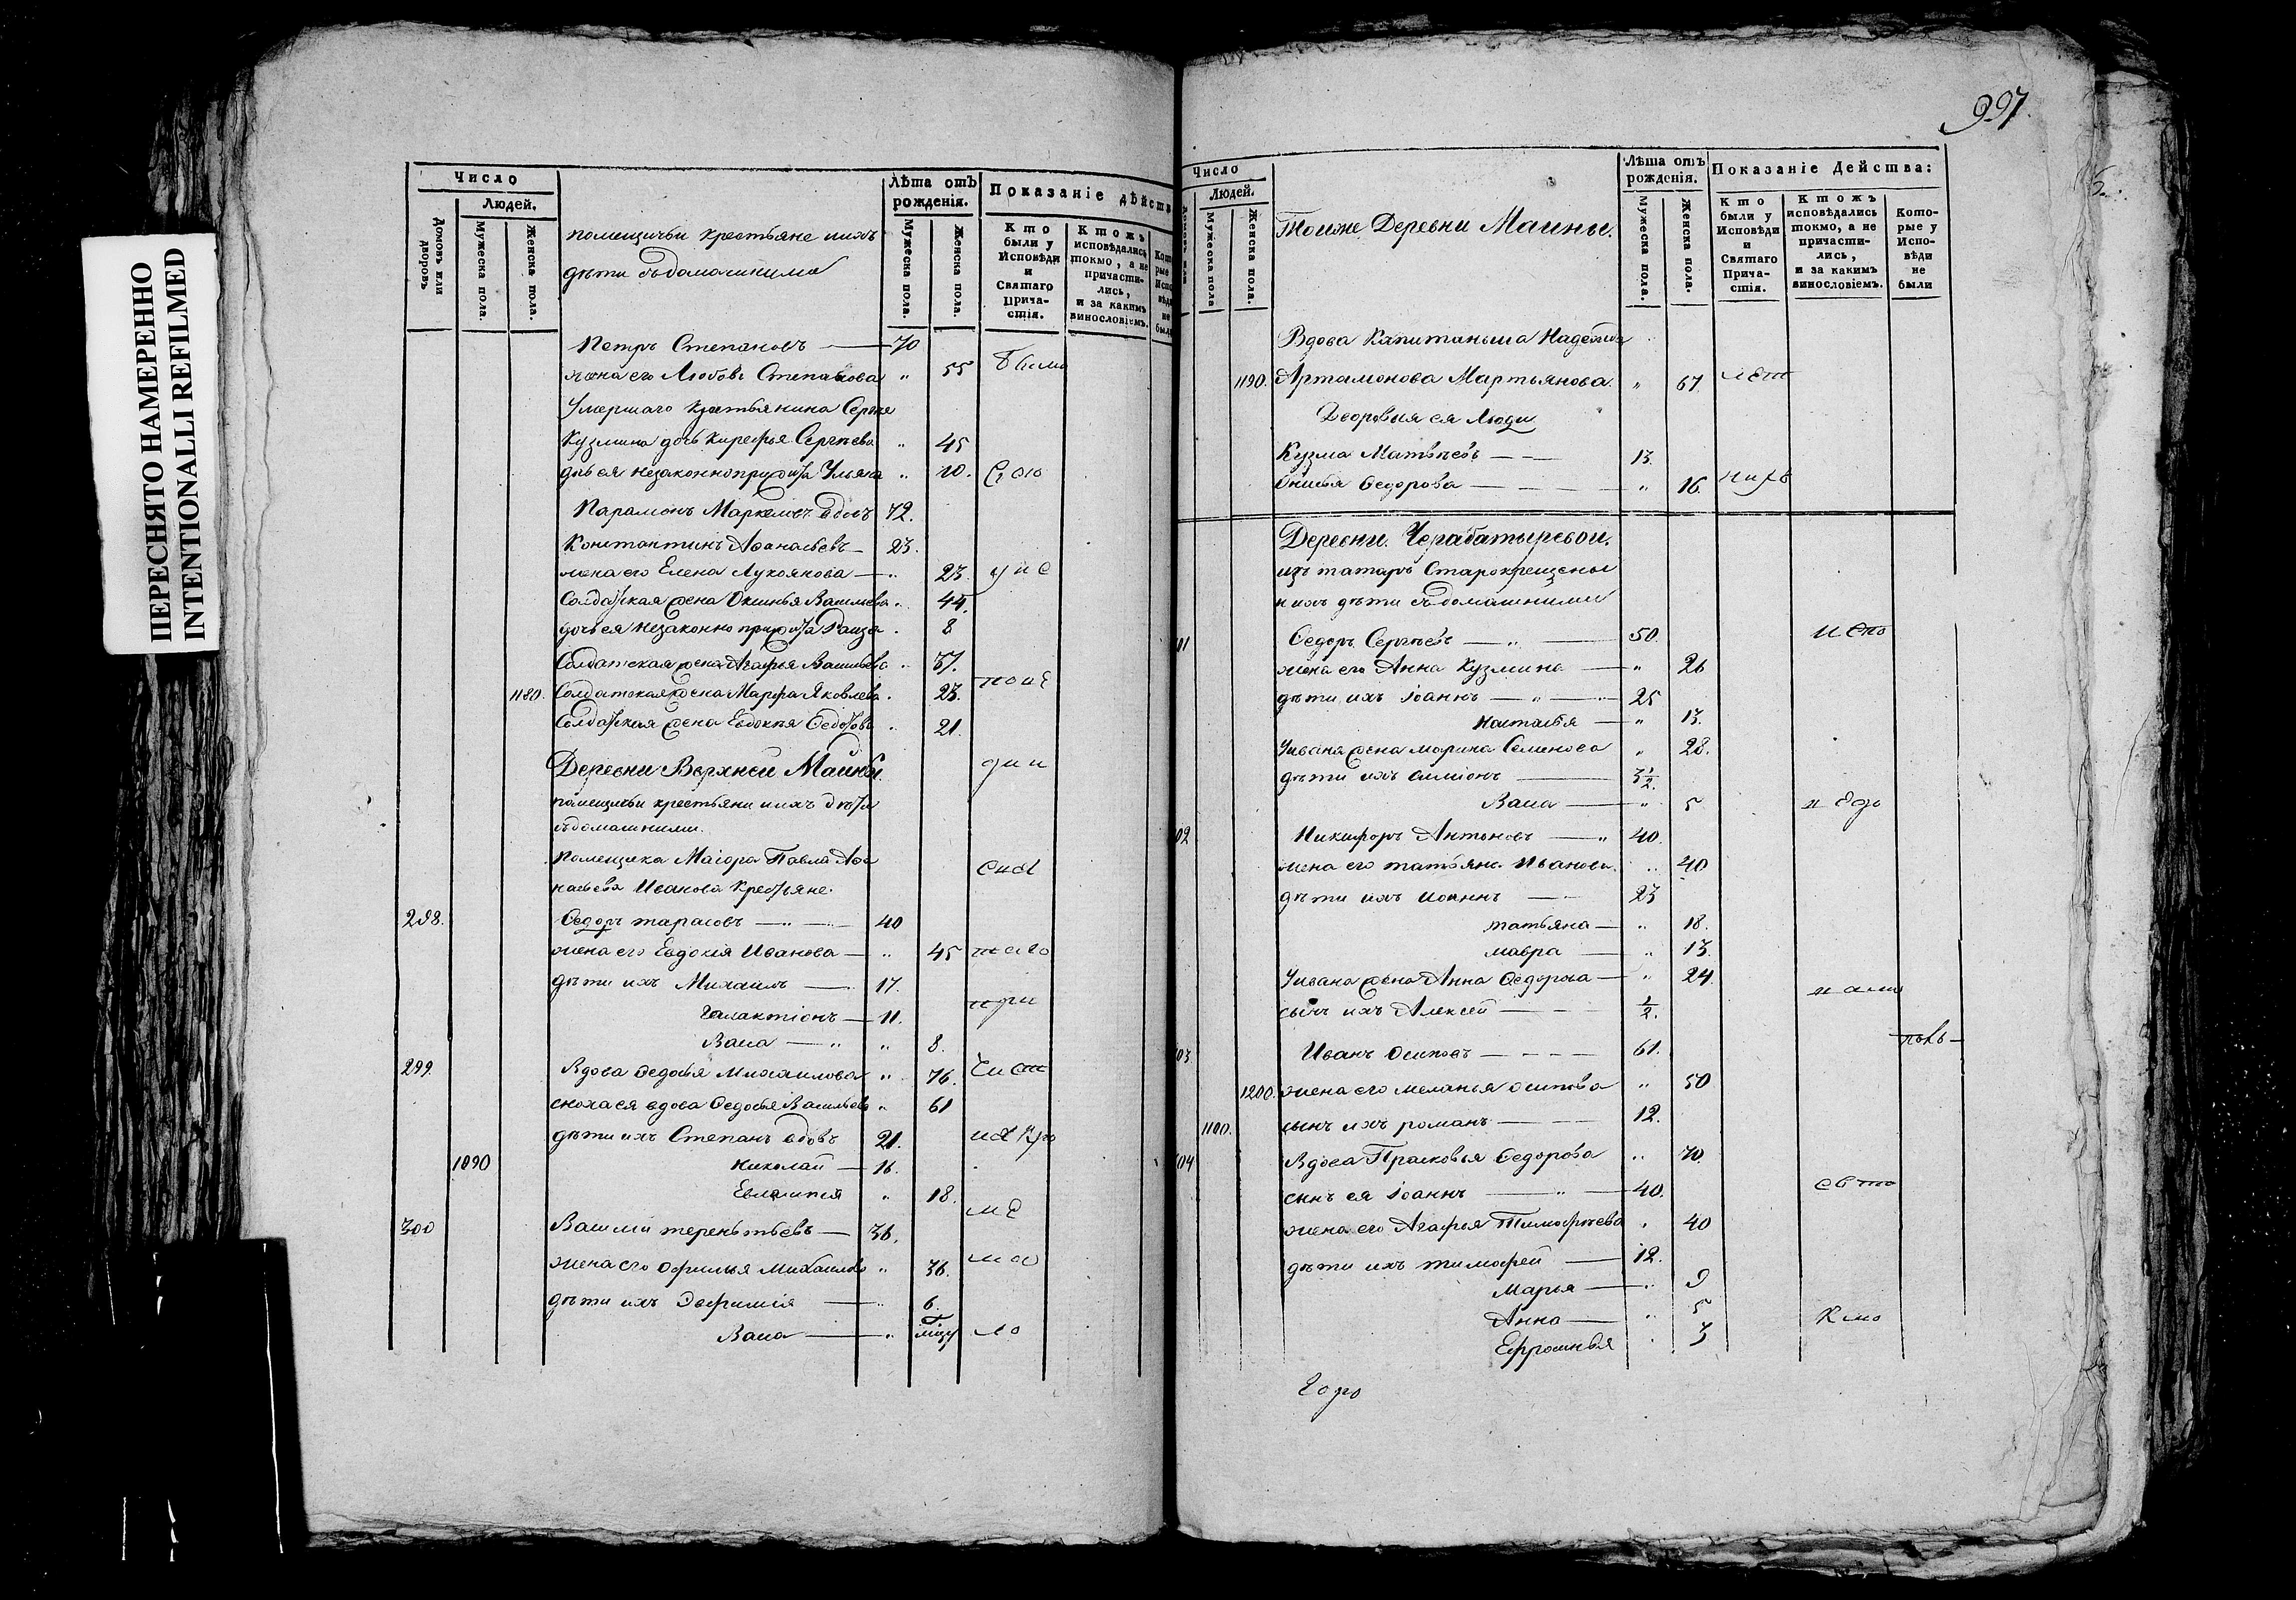 ПЕРЕСНЯТО НАМЕРЕННО
INTENTIONALLI REFILMED
Число
Людей.
Домовъ или дворовъ
Мужеска пола.
Женска пола.
помещичьи крестьяне иихъ
дѣти съдомашними
Лѣта отъ рожденія.
Мужеска пола.
Женска пола.
Показаніе дѣйств
Кто были у Исповѣди и Святаго Прича- стія.
Ктожъ исповѣдались токмо, а не причасти- лись, и за какимъ винословіемъ.
Петръ Степановъ — 70
жена его Любовь Степанова " 55 были
Умершаго крестьянина Сергея
Кузмина дочь Сергѣева " 45
дочь ея незаконноприжита Ульяна " 10.
Парамонъ вдовъ 72.
Константинъ Афанасьевъ — 23.
жена его Елена Лукоянова — " 23. у ис
Солдатская жена Оксинья Васильева " 44.
дочь ея незаконно прижита " 8
Солдатская жена Агафья Васильева " 37.
1180. Солдатская жена Марфа Яковлева " 23. пови
Солдатская жена Евдокея Федотова " 21.
Деревни Верхней Маины. ди и
помещичьи крестьяни иихъ дѣти
съдомашними.
Помещика Маіора Павла Афа
насьева Иванова Крестьяне.
298. Федоръ тарасовъ — " — 40
жена его Евдокія Иванова — " 45
дѣти ихъ Михаилъ — 17.
Галактіонъ — 11. при
Васа — " " 8.
299. Вдова Федосья Михаилова " 76. чист
сноха ея вдова Федосья Васильева " 61
дѣти ихъ Степанъ вдовъ 21.
1090 Николай — 16.
Евлампія " 18.
300 Василй терентьевъ — 36.
жена его Офимья Михаилова " 36.
дѣти ихъ Эвфимія — " 6.
Васа — "
997.
Число
Людей.
Мужеска пола
Женска пола.
Тоиже Деревни Маины.
Лѣта отъ рожденія.
Мужеска пола.
Женска пола.
Показаніе Действа:
Кто были у Исповѣди и Святаго Прича- стія.
Ктожъ исповѣдались токмо, а не причасти- лись, и за какимъ винословіемъ.
Кото- рые у Испо- вѣди не были
Вдова Капитанша Надежда
1190. Артамонова Мартьянова. " 67
Дворовыя ея Люди
Кузма Матвѣевъ — — 13.
Федорова — — " 16. нихъ
Деревни. Черабатыревои.
изъ татаръ Старокрещены
иихъ дѣти съдомашними
01 Федоръ Сергѣевъ — " — 50. испо
жена его Анна Кузмина — " 26
дѣти ихъ Іоаннъ — " — 25
Настасья — " 13.
Жена Марина Семенова " 28.
дѣти ихъ — 3 1/2.
Васа — " 5
02 Никифоръ Антоновъ — " 40.
жена его татьяна Иванова. " 40
дѣти ихъ Иоаннъ — — 23
татьяна — " 18.
мавра — " 13.
жена Анна Федорова — " 24.
сынъ ихъ Алексей — — 1/2.
03 Иванъ Осиповъ — — — 61.
1200. жена его Меланья осипова " 50
1100. сынъ ихъ романъ — — 12.
04 Вдова Прасковья Федорова " 70.
сынъ ея Іоаннъ — " — 40.
жена его Агафья Тимофѣева " 40
дѣти ихъ тимофей — 12.
Марья — " 9
Анна — " 5
Ефросинья " 3